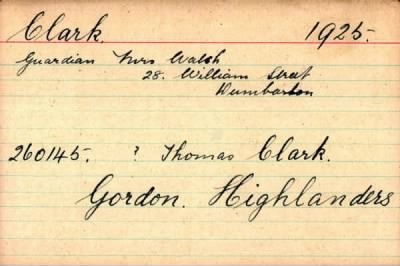 Clark. 1925.
Guardian Mrs Walsh
28. William Street
Dumbarton
260145. ? Thomas Clark.
Gordon. Highlanders